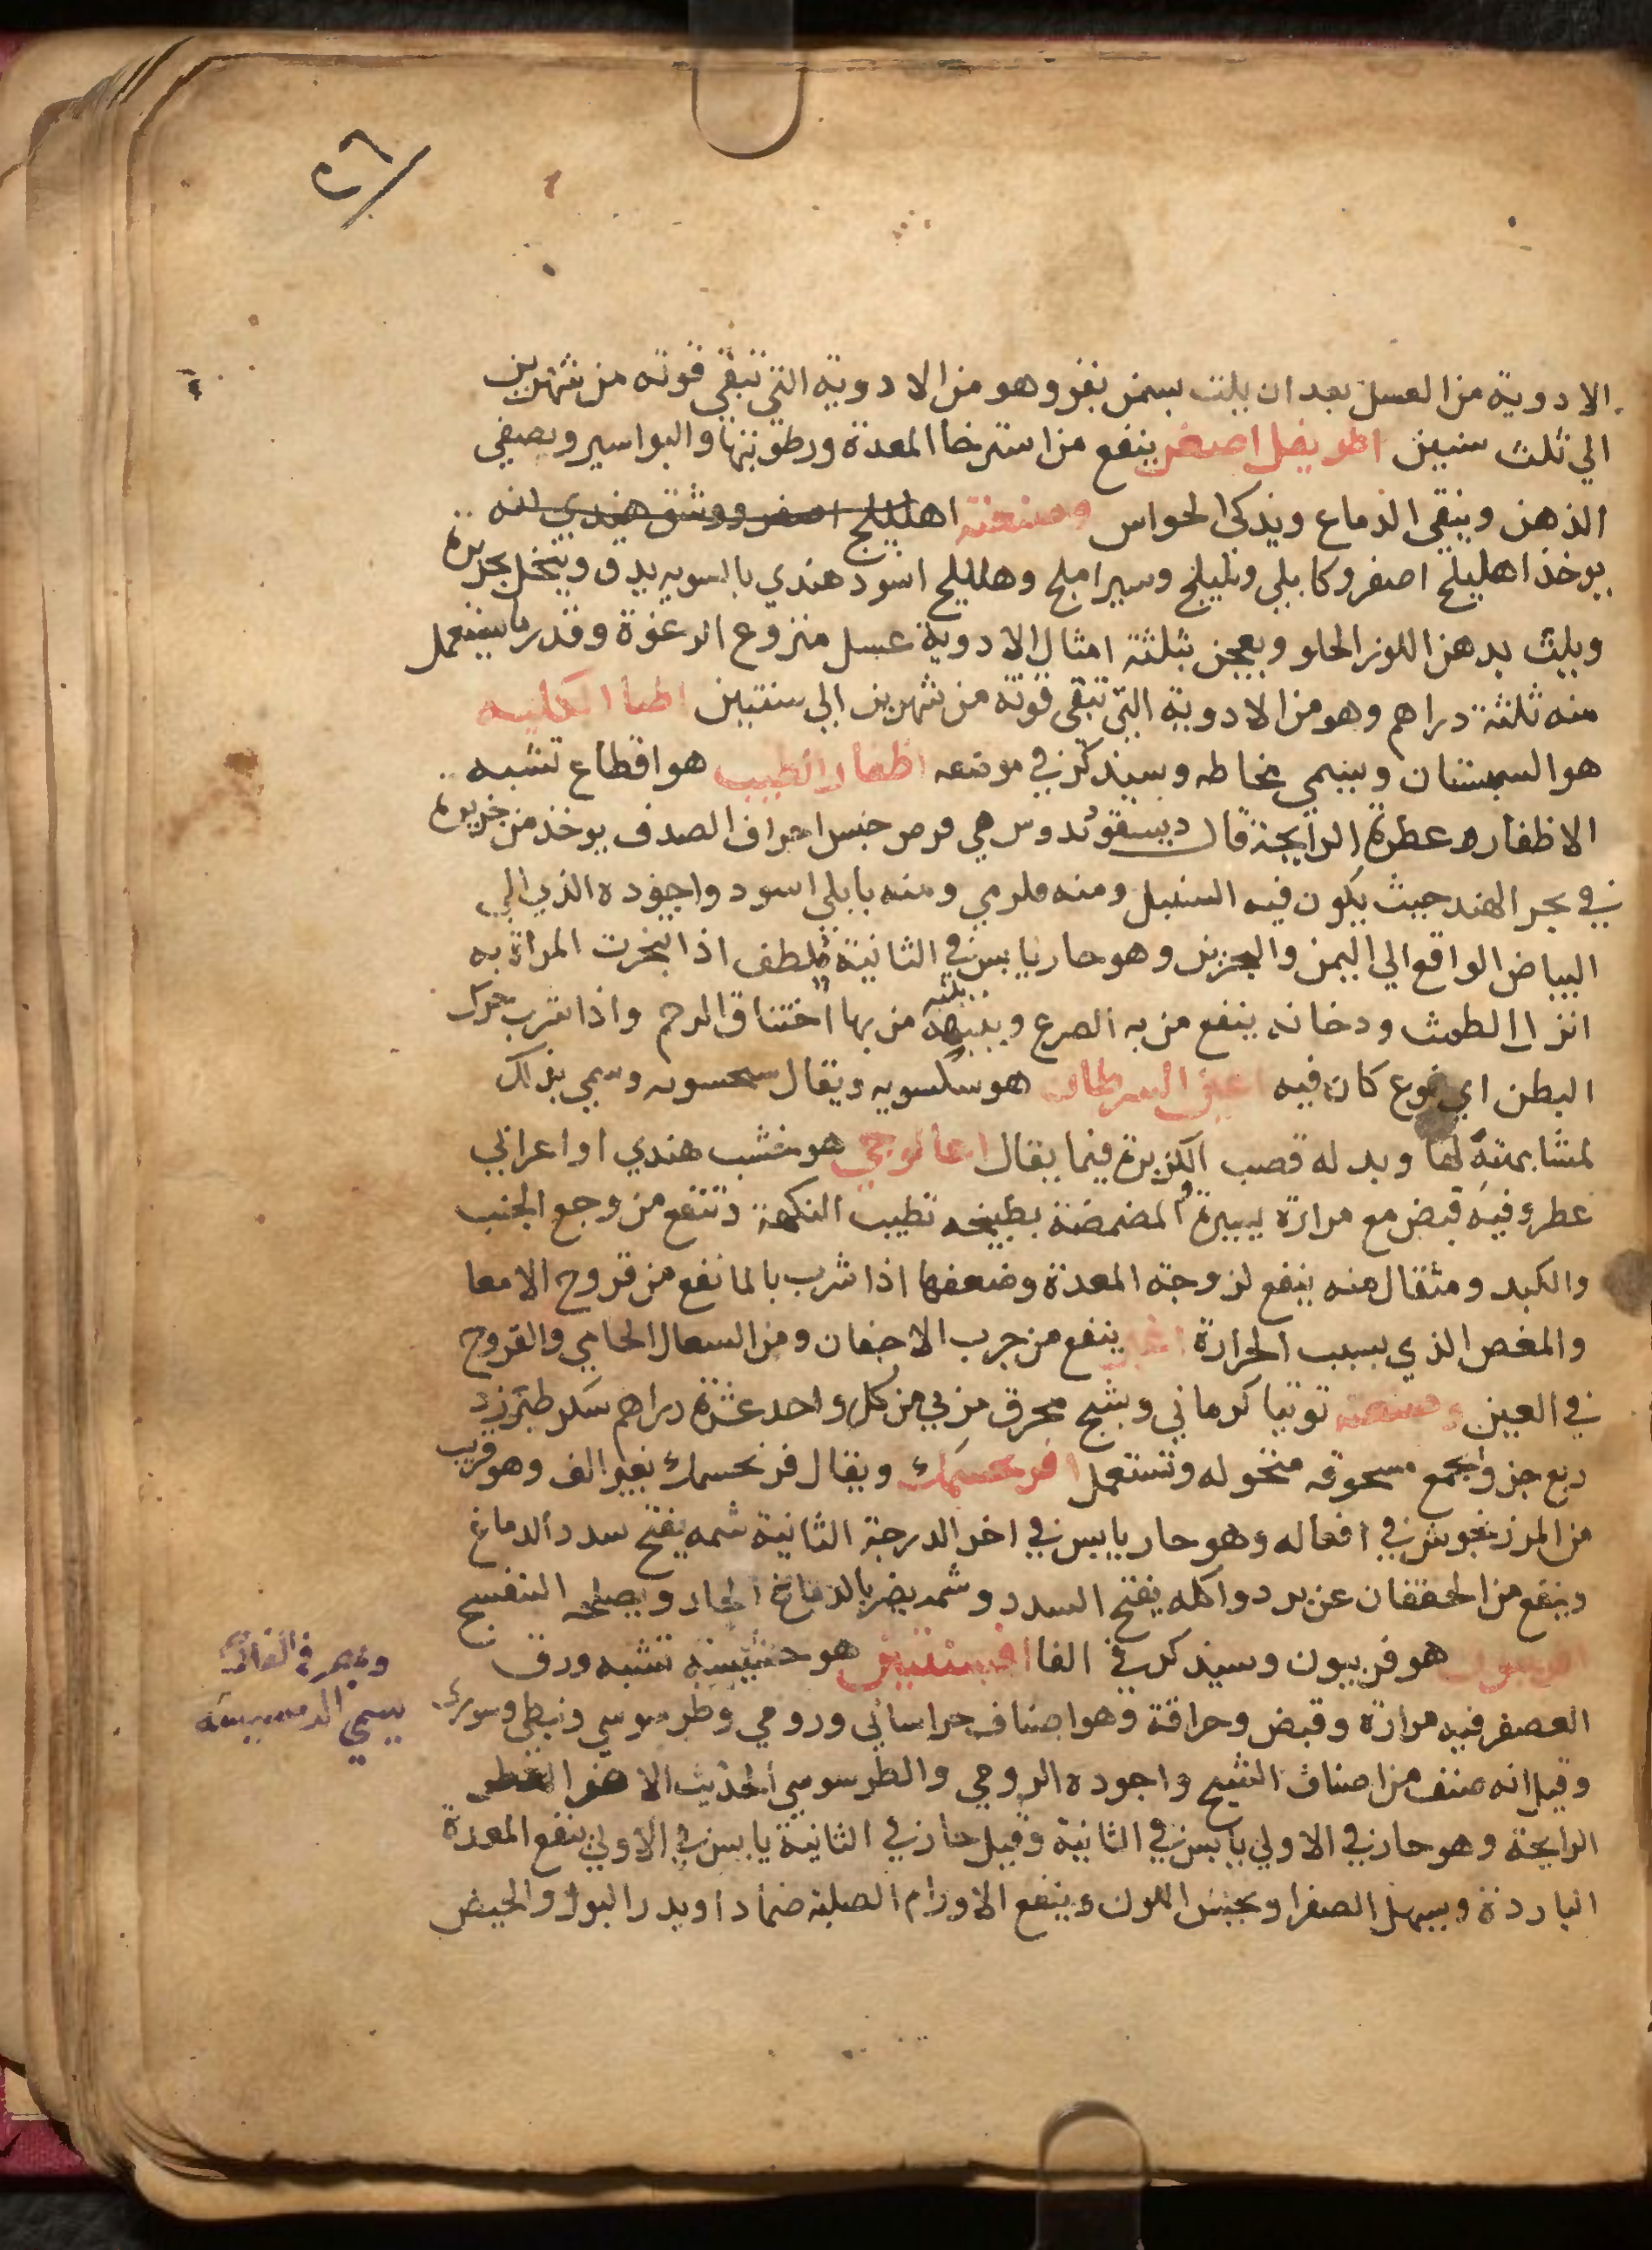 ٢٦
الادوية من العسل بعد ان يلت بسمن بقر وهو من الادوية التي تبقي قوته من شهرين
الي ثلث سنين اطريفل اصغر ينفع من استرخا المعدة ورطوبتها والبواسير ويصفي
الذهن وينقي الدماغ ويذكي الحواس وصنعته اهليلج اصفر هندي
يوخذ اهليلج اصفر وكابلي وبليلج وسير املج وهليلج اسود هندي بالسويه يدق وينخل بحريرة
ويلث بدهن اللوز الحلو ويعجن بثلثة امثال الادوية عسل منزوع الرغوة وقدر ما يستعمل
منه ثلثة دراهم وهو من الادوية التي تبقي قوته من شهرين الي سنتين اطبا الكلبه
هو السبستان ويسمي مخاطه وسيذكر في موضعه اظفار الطيب هو اقطاع تشبه
الاظفار عطرة الرايحة قال ديسقوئدوس هي من جنس اطراف الصدف يوخذ من جزيرة
في بحر الهند حيث يكون فيه السنبل ومنه قلزمي ومنه بابلي اسود واجوده الذي الي
البياض الواقع الي اليمن والبحرين وهو حار يابس في الثانية يلطف اذا تبخرت المراة به
انزل الطمث ودخانه ينفع من به الصرع وينبه من بها اختناق الرحم واذا شرب حرك
البطن اي نوع كان فيه اعين السرطان هو سكسويه ويقال سحسويه وسمي بذلك
لمشابهته لها وبدله قصب الكزبرة فيما يقال اغالوجي هو خشب هندي او اعرابي
عطر وفيه قبض مع مرارة يسيرة والمضمضة بطبيخه تطيب النكهة وتنفع من وجع الجنب
والكبد ومثقال منه ينفع لزوجة المعدة وضعفها اذا شرب بالما نفع من قروح الامعا
والمغص الذي بسبب الحرارة اغبر ينفع من جرب الاجفان ومن السعال الحامي والقروح
في العين وصنعته توتيا كرماني وبشيح محرق مربي من كل واحد عشرة دراهم سكر طبرزد
ربع جز ويجمع مسحوقه منخوله وتستعمل افرنجمشك ويقال فرنجمشك بغير الف وهو قريب
من المرزنجوش في افعاله وهو حار يابس في اخر الدرجة الثانية شمه يفتح سدد الدماغ
وينفع من الخفقان عن برد واكله يفتح السدد وشمه يضر بالدماغ الحار ويصلحه البنفسج
افربيون هو فربيون وسيذكر في الفا افسنتين هو حشيشة تشبه ورق
العصفر فيه مرارة وقبض وحرافة وهو اصناف خراساني ورومي وطرسوسي ونبطي وسوري
وقيل انه صنف من اصناف الشيح واجوده الرومي والطرسوسي الحديث الاصفر العطر
الرايحة وهو حار في الاولي يابس في الثانية وقيل حار في الثانية يابس في الاولي ينفع المعدة
الباردة ويسهل الصفرا ويحسن اللون وينفع الاورام الصلبة ضمادا ويدر البول والحيض
يسمي الدمسيسه